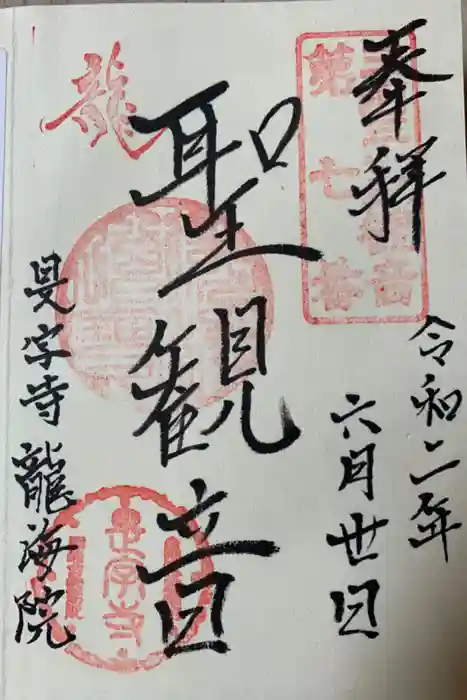 奉拝
令和二年
六月丗日
第七番
聖観音
龍
是字寺
是字寺龍海院